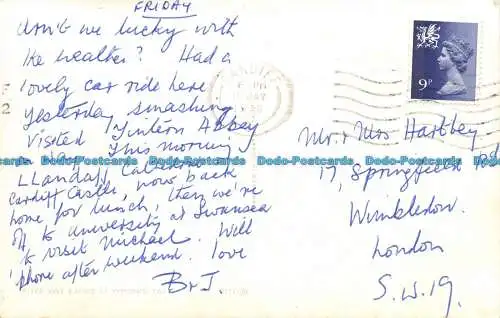 FRIDAY
don't we lucky with
the weather? Had a
lovely car ride here
yesterday smashing
Visited Tintern Abbey
This morning
LLandaff Cathedral
Cardiff Castle, now back
home for lunch, then we're
off to university at Swansea
to visit Michael. Will
'phone after weekend. love
B & J.
CARDIFF
9P
Mr. & Mrs Hartley
17, Springfield Rd
Wimbledon.
London
S.W.19.
Dodo-Postcards Dodo-Postcards Dodo-Postcards Dodo-Postcards Dodo-Postcards